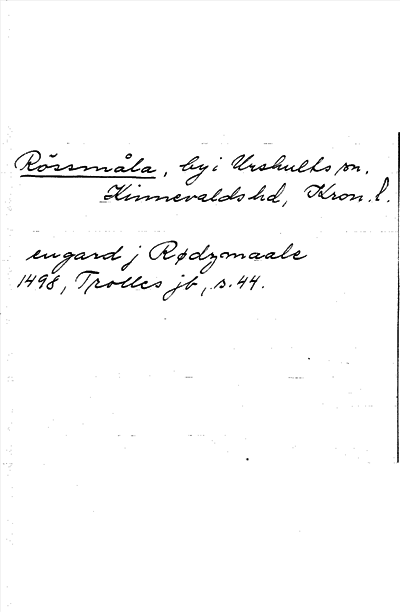 Rössmåla, by i Urshults sn.
Kinnevalds hd, Kron. l.
en gard j Rødzmaale
1498, Trolles jb, s. 44.